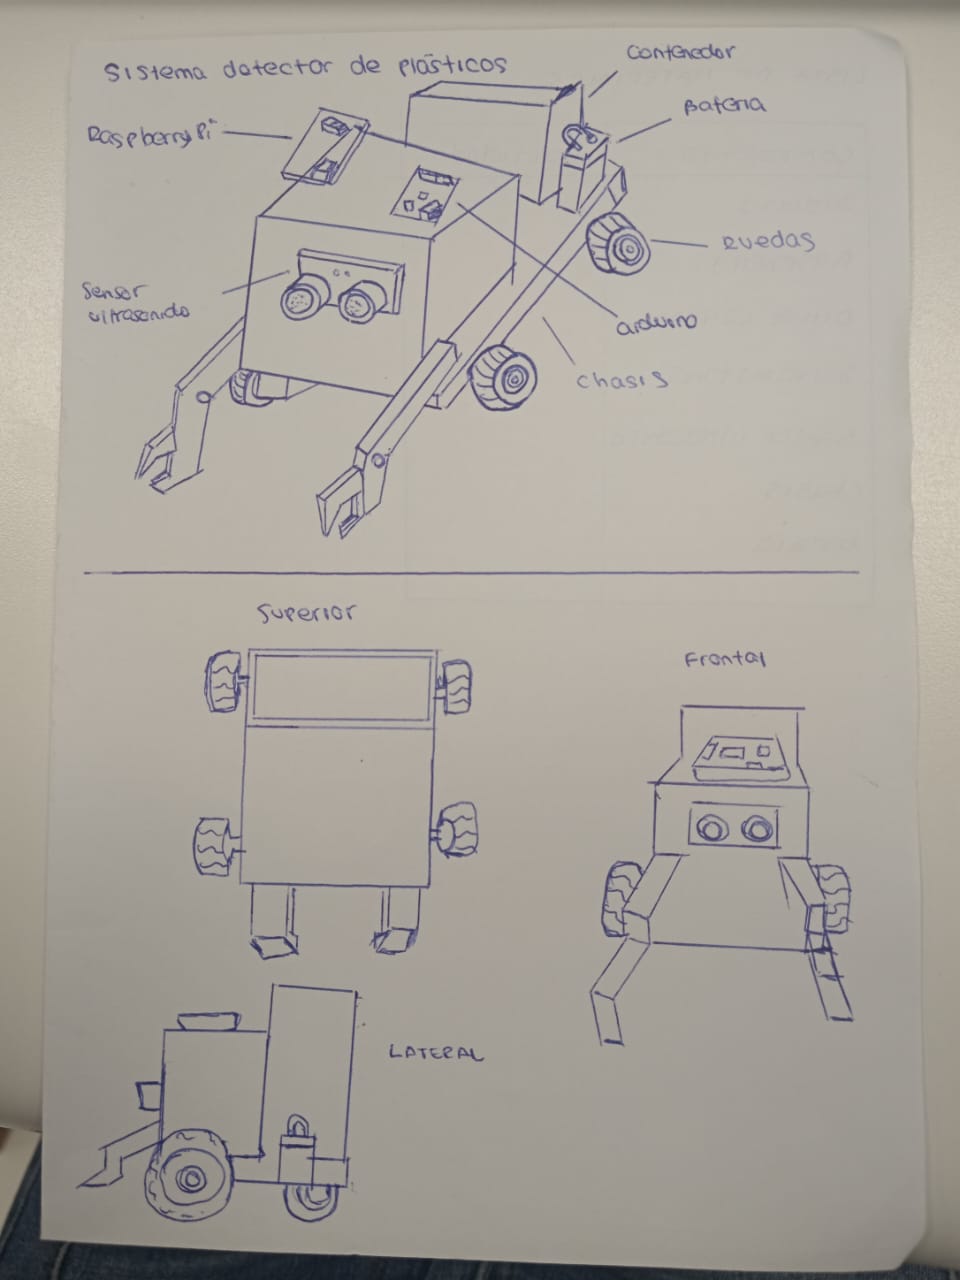 Sistema detector de plásticos
Contenedor
Bateria
Raspberry Pi
Ruedas
Sensor
ultrasonido
arduino
chasis
Superior
Frontal
LATERAL